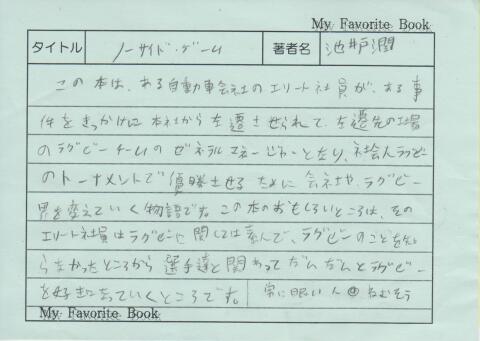 My Favorite Book
タイトル ノーサイド・ゲーム 著者名 池井戸潤
この本は、ある自動車会社のエリート社員が、ある事
件をきっかけに本社から左遷させられて、左遷先の工場
のラグビーチームのゼネラルマネージャーとなり、社会人ラグビー
のトーナメントで優勝させるために会社や、ラグビー
界を変えていく物語です。この本のおもしろいところは、その
エリート社員はラグビーに関しては素人で、ラグビーのことを知
らなかったところから選手達と関わってだんだんとラグビー
を好きになっていくところです。 常に眠い人@ねむそう
My Favorite Book